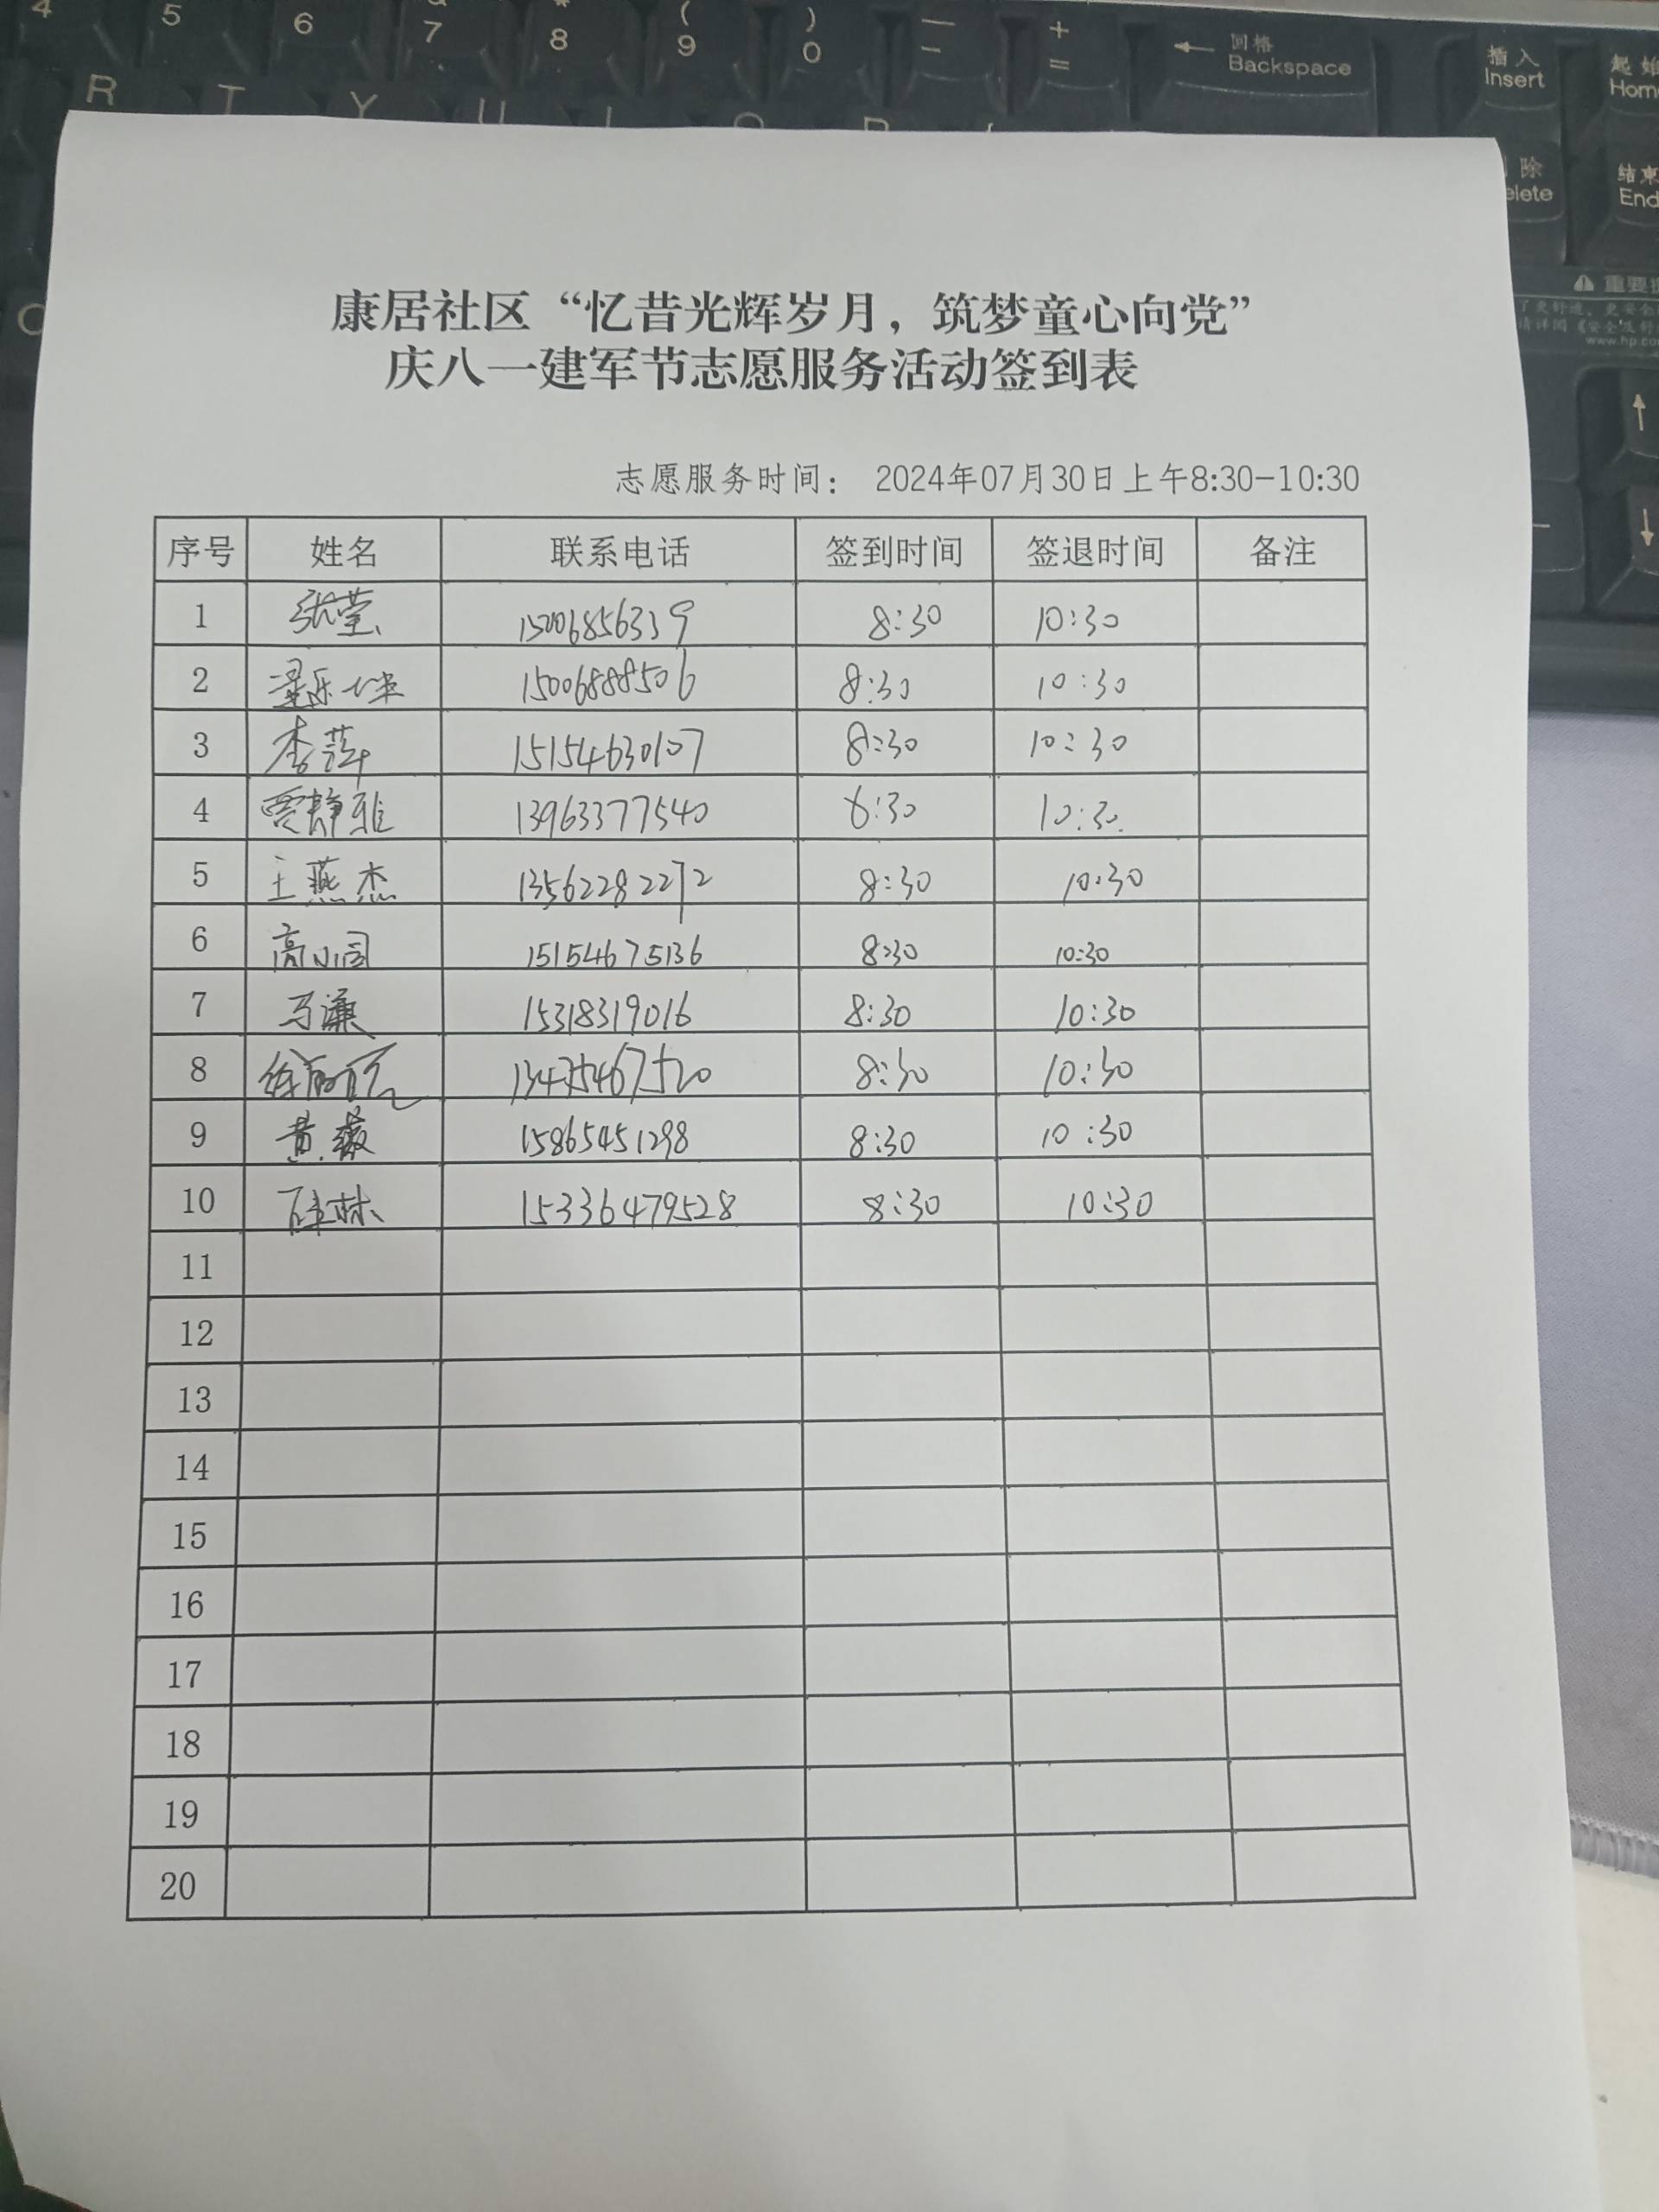 4 5 6 7 * 8 ( 9 ) 0 — - + = ← 回格 Backspace 插入 Insert 起始 Hom
R T Y U I O P
除 elete 结束 End
重要
www.hp.co
康居社区“忆昔光辉岁月，筑梦童心向党”
庆八一建军节志愿服务活动签到表
志愿服务时间： 2024年07月30日上午8:30-10:30
序号 姓名 联系电话 签到时间 签退时间 备注
1 张莹 15006856339 8:30 10:30
2 15006888506 8:30 10:30
3 李萍 15154630107 8:30 10:30
4 贾静雅 13963377540 8:30 10:30
5 王燕杰 13562282272 8:30 10:30
6 高小园 15154675136 8:30 10:30
7 马谦 15318319016 8:30 10:30
8 徐 13475467520 8:30 10:30
9 黄薇 15865451298 8:30 10:30
10 15336479528 8:30 10:30
11
12
13
14
15
16
17
18
19
20